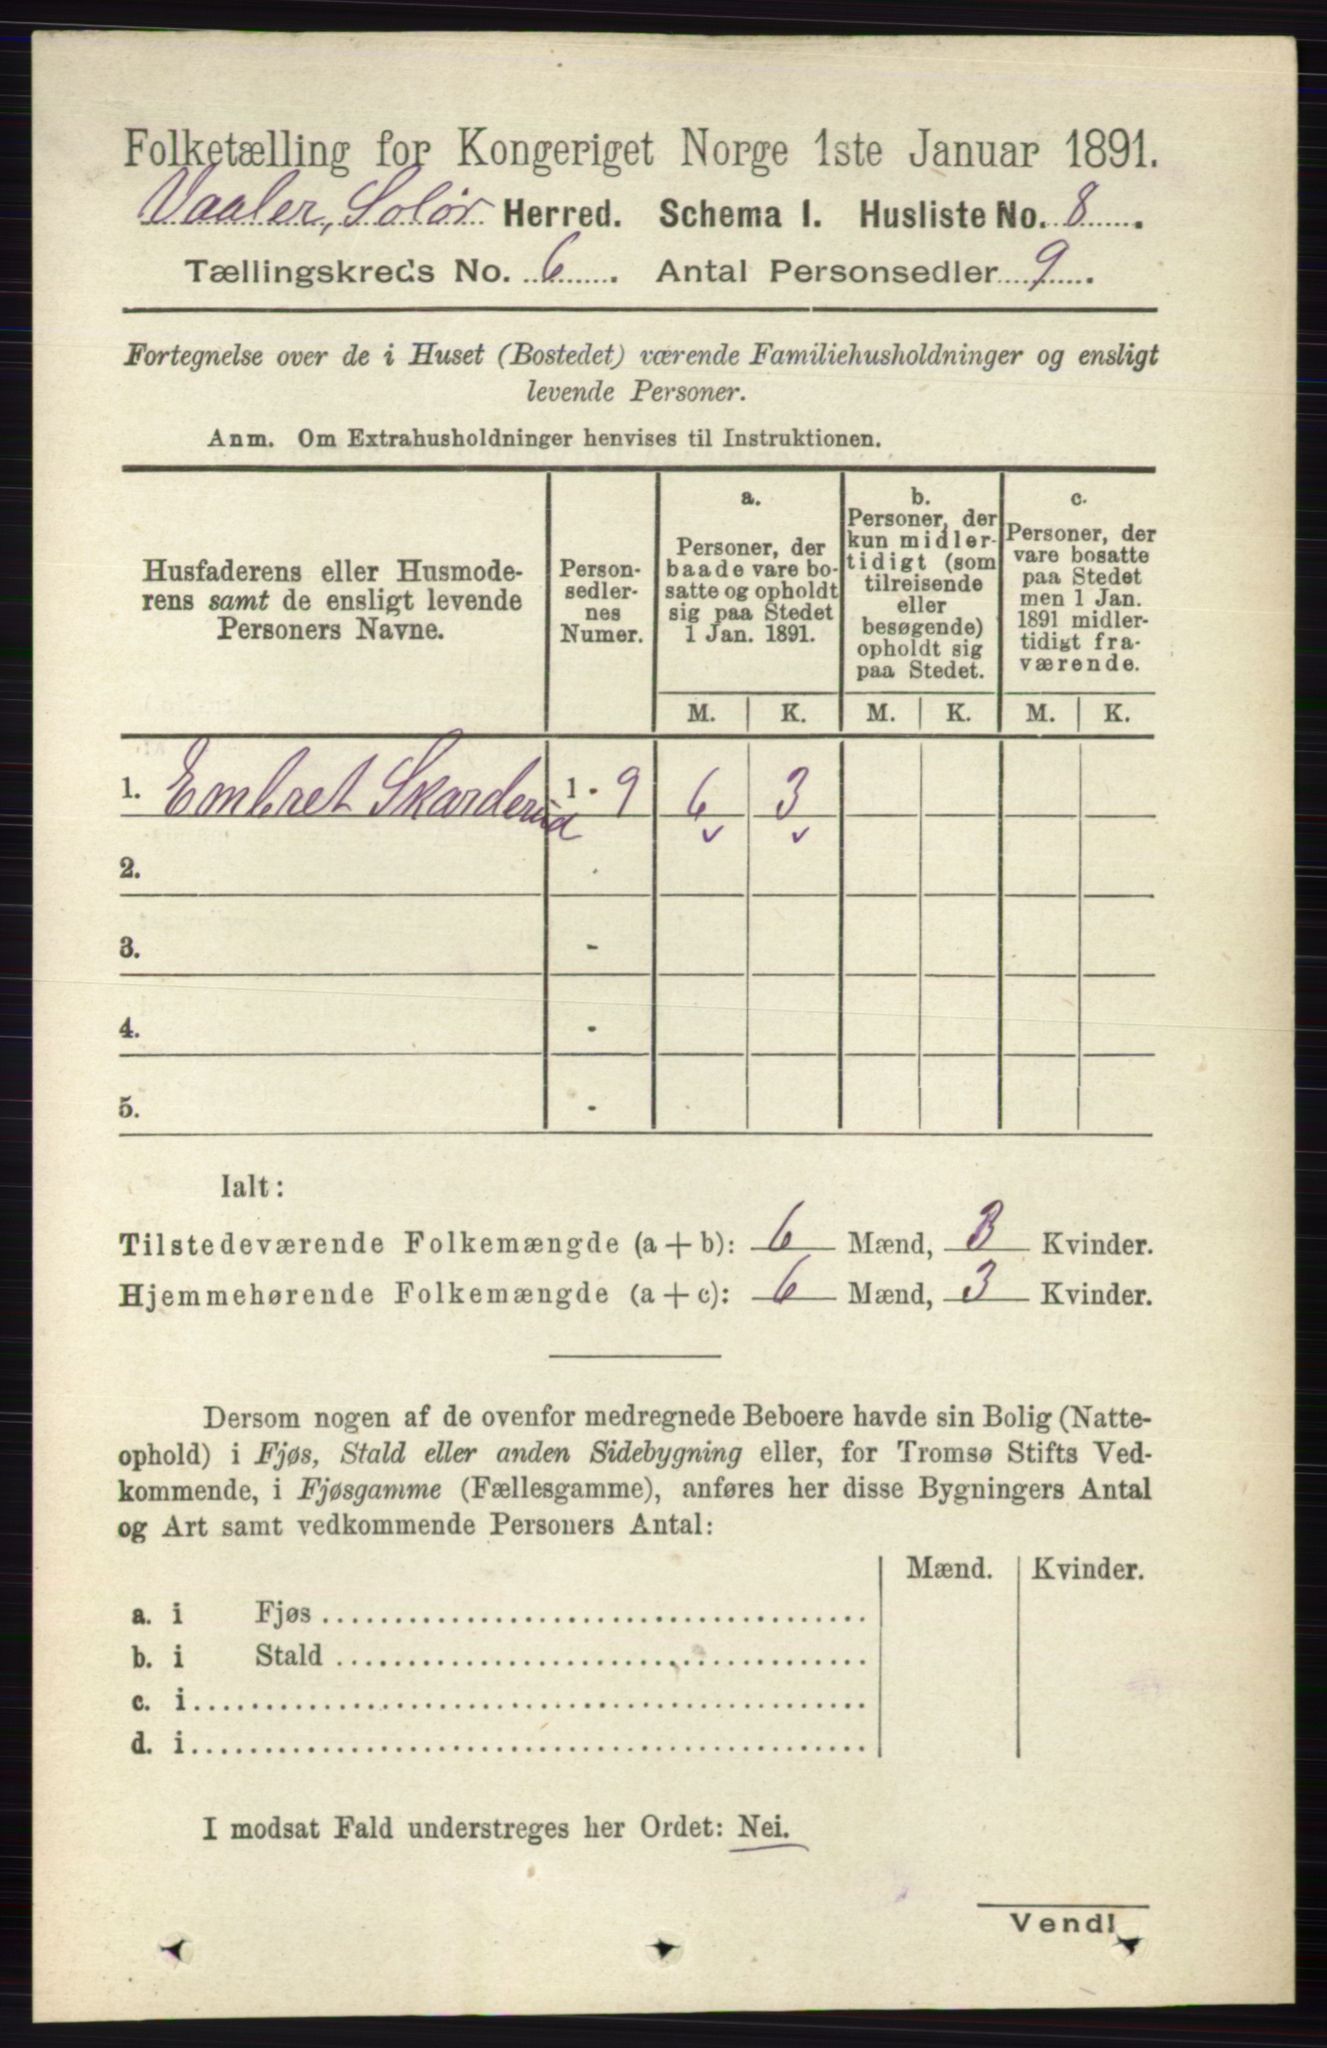 Folketælling for Kongeriget Norge 1ste Januar 1891.
Vaaler, Solør Herred. Schema I. Husliste No. 8.
Tællingskreds No. 6. Antal Personsedler 9.
Fortegnelse over de i Huset (Bostedet) værende Familiehusholdninger og ensligt
levende Personer.
Anm. Om Extrahusholdninger henvises til Instruktionen.
Husfaderens eller Husmode-
rens samt de ensligt levende
Personers Navne.
Person-
sedler-
nes
Numer.
a.
Personer, der
baade vare bo-
satte og opholdt
sig paa Stedet
1 Jan. 1891.
b.
Personer, der
kun midler-
tidigt (som
tilreisende
eller
besøgende)
opholdt sig
paa Stedet.
c.
Personer, der
vare bosatte
paa Stedet
men 1 Jan.
1891 midler-
tidigt fra-
værende.
M. K. M. K. M. K.
1. Embret Skarderud 1 - 9 6 3
2. -
3. -
4. -
5. -
Ialt:
Tilstedeværende Folkemængde (a + b): 6 Mænd, 3 Kvinder.
Hjemmehørende Folkemængde (a + c): 6 Mænd, 3 Kvinder.
Dersom nogen af de ovenfor medregnede Beboere havde sin Bolig (Natte-
ophold) i Fjøs, Stald eller anden Sidebygning eller, for Tromsø Stifts Ved-
kommende, i Fjøsgamme (Fællesgamme), anføres her disse Bygningers Antal
og Art samt vedkommende Personers Antal:
Mænd. Kvinder.
a. i Fjøs
b. i Stald
c. i
d. i
I modsat Fald understreges her Ordet: Nei.
Vend!